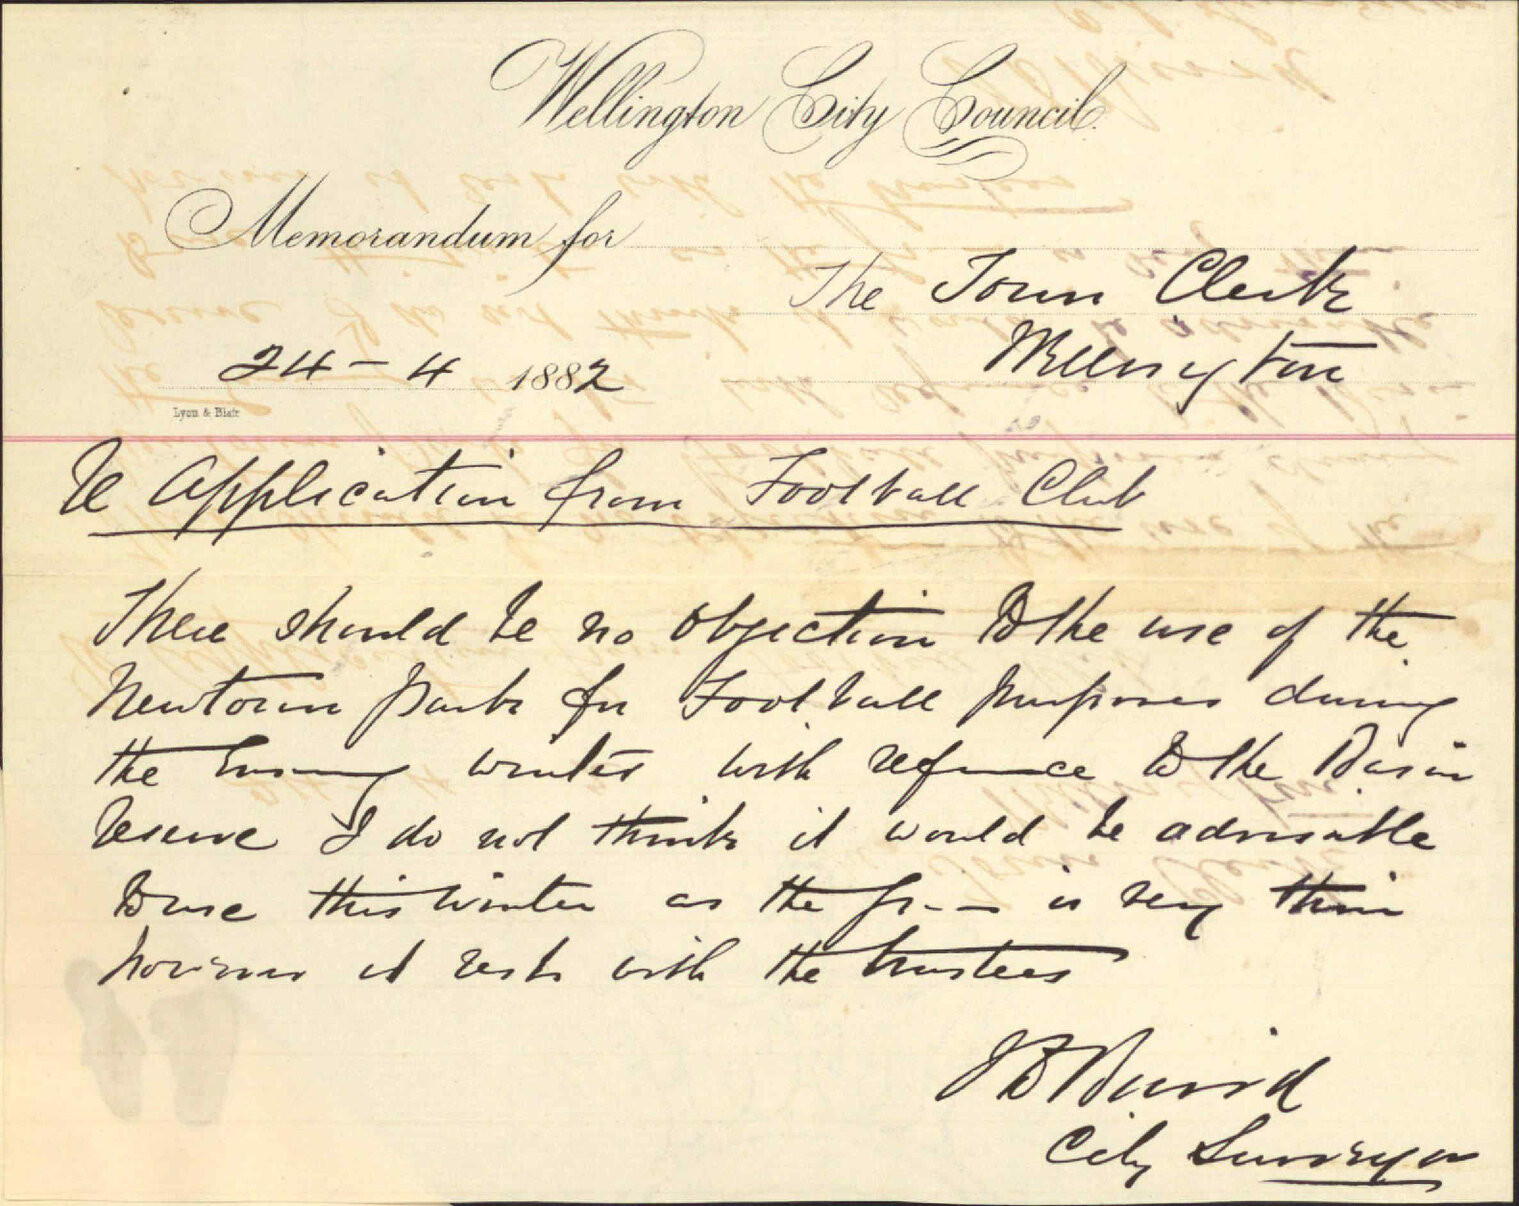 Wellington City Council.
Memorandum for
The Town Clerk
Wellington
24 - 4 1882
Lyon & Blair
Re Application from Football Club
There should be no objection to the use of the
Newtown Park for Football purposes during
the Ensuing winter with reference to the Basin
reserve I do not think it would be advisable
to use this Winter as the grass is very thin
however it rests with the trustees
J D Baird
City Surveyor